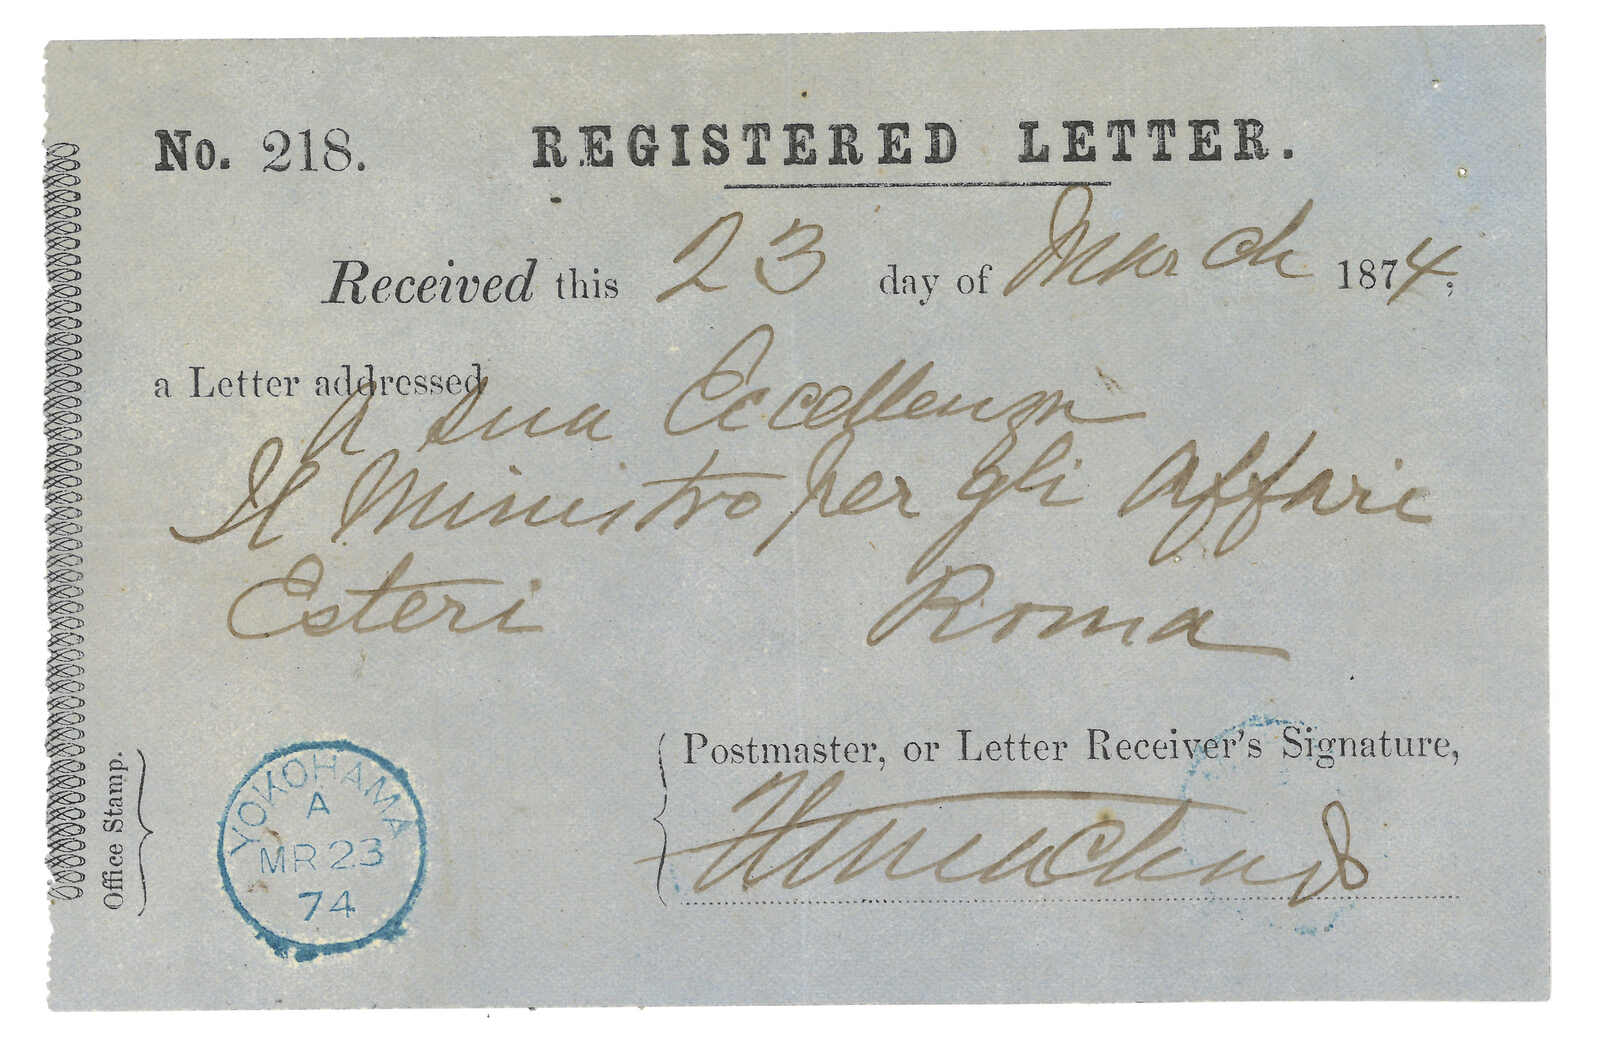 No. 218. REGISTERED LETTER.
Received this 23 day of March 1874,
a Letter addressed
A Sua Eccellenza
Il Ministro per gli Affari
Esteri Roma
Office Stamp.
YOKOHAMA
A
MR 23
74
Postmaster, or Letter Receiver's Signature,